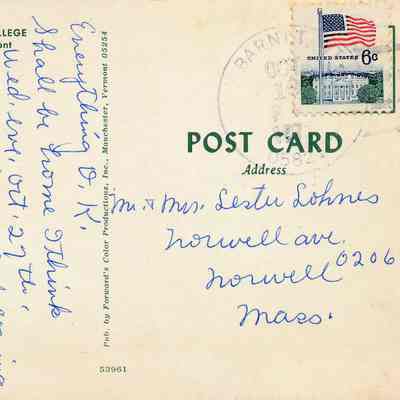 LLEGE
ont
Everything O.K.
Shall be home I think
Wed. eve, Oct. 27th
Pub. by Forward's Color Productions, Inc., Manchester, Vermont 05254
53961
BARNET
UNITED STATES 6c
POST CARD
Address
Mr. & Mrs. Lester Lohnes
Norwell Ave.
Norwell 0206
Mass.